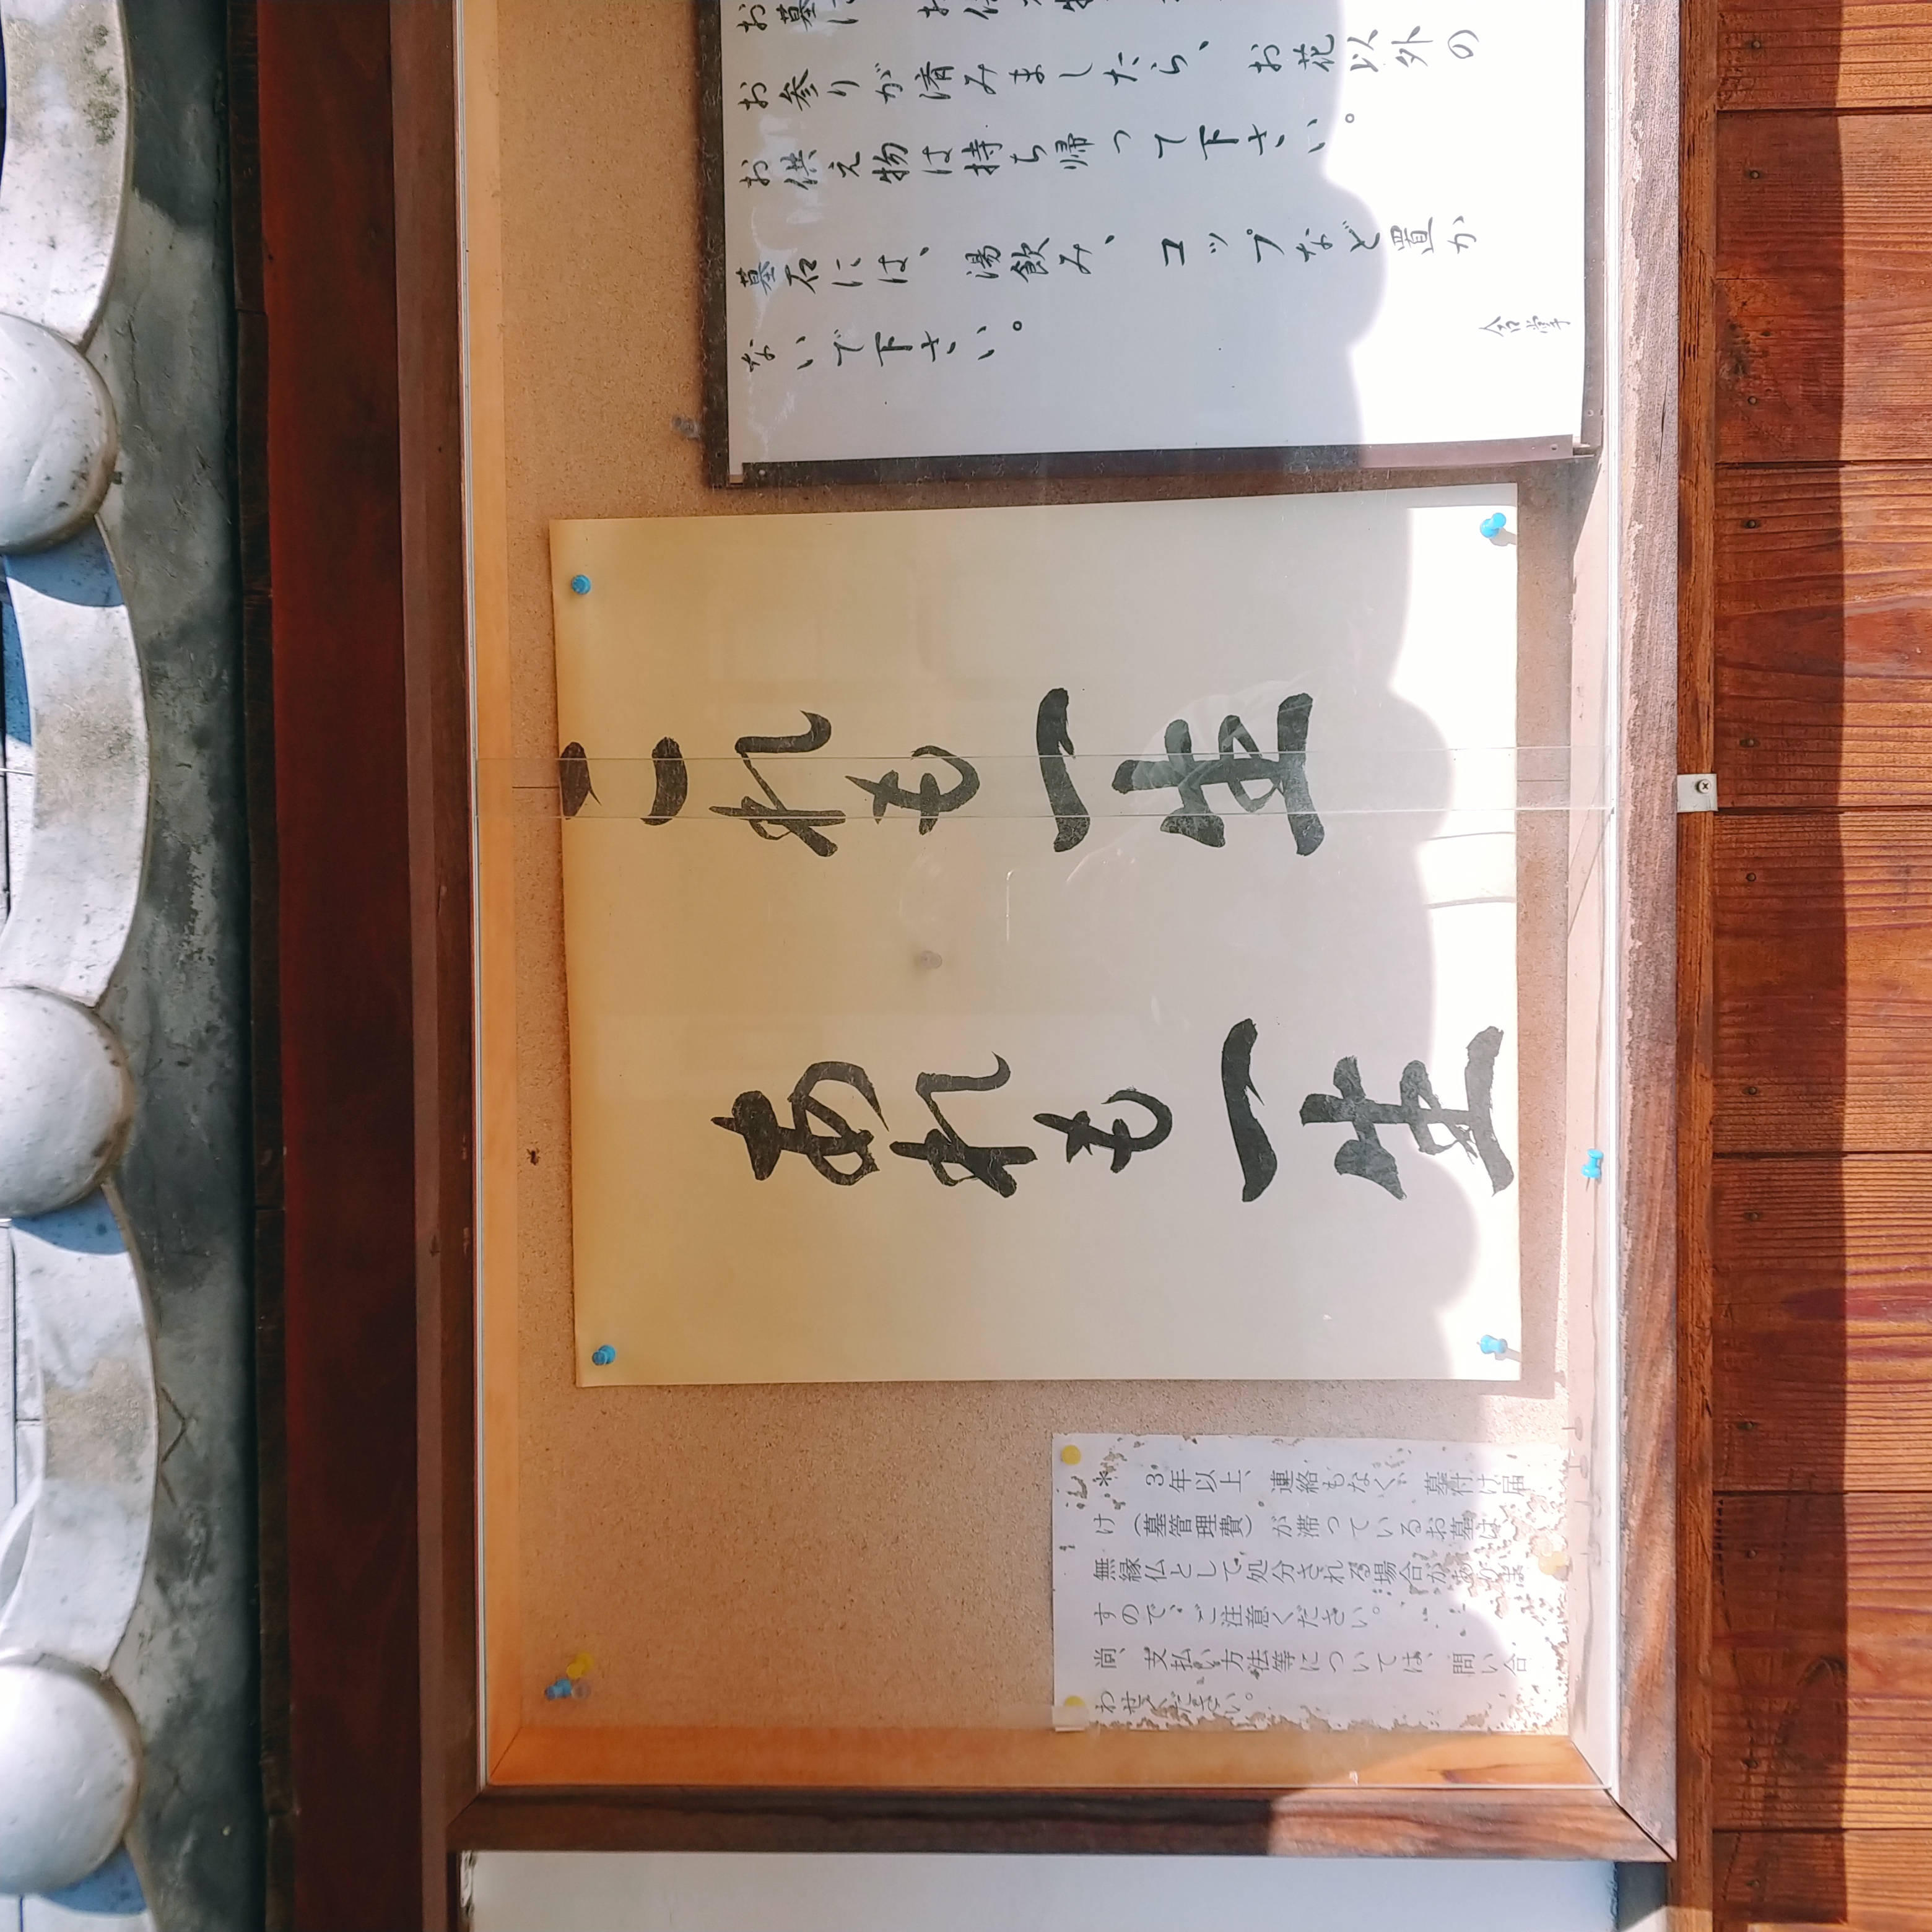 お参りが済みましたら、お花以外の
お供え物は持ち帰って下さい。
墓石には、湯飲み、コップなど置か
ないで下さい。
合掌
これも一生
あれも一生
※
3年以上、連絡もなく、墓付け届
け（墓管理費）が滞っているお墓は、
無縁仏として処分される場合がありま
すので、ご注意ください。
尚、支払い方法等については、問い合
わせください。